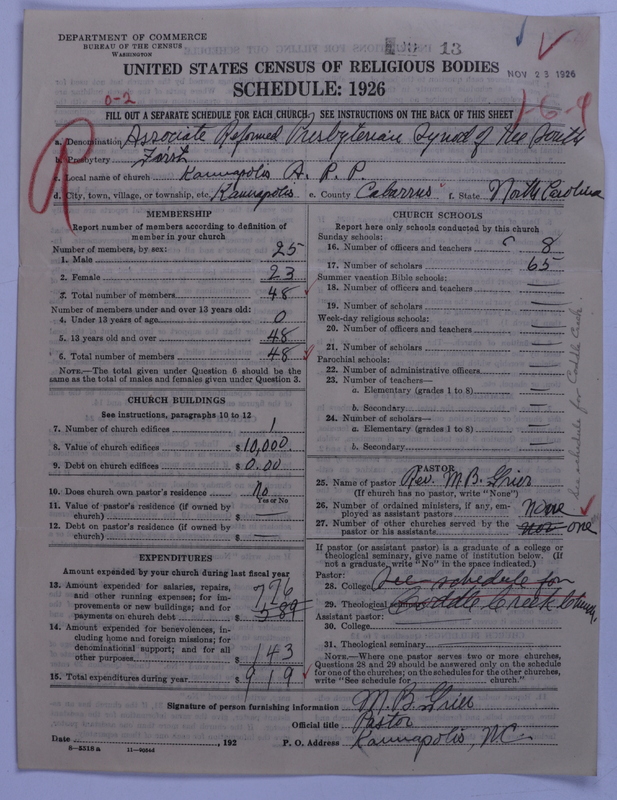 DEPARTMENT OF COMMERCE
BUREAU OF THE CENSUS
WASHINGTON
13
NOV 23 1926
UNITED STATES CENSUS OF RELIGIOUS BODIES
SCHEDULE: 1926
0-2
1-6-9
FILL OUT A SEPARATE SCHEDULE FOR EACH CHURCH. SEE INSTRUCTIONS ON THE BACK OF THIS SHEET
R
a. Denomination Associate Reformed Presbyterian Synod of the South
b. Presbytery First
c. Local name of church Kannapolis A. R. P.
d. City, town, village, or township, etc. Kannapolis e. County Cabarrus f. State North Carolina
MEMBERSHIP
Report number of members according to definition of
member in your church
Number of members, by sex:
1. Male 25
2. Female 23
3. Total number of members 48
Number of members under and over 13 years old:
4. Under 13 years of age 0
5. 13 years old and over 48
6. Total number of members 48
NOTE.—The total given under Question 6 should be the
same as the total of males and females given under Question 3.
CHURCH BUILDINGS
See instructions, paragraphs 10 to 12
7. Number of church edifices 1
8. Value of church edifices $ 10,000.
9. Debt on church edifices $ 0.00
10. Does church own pastor's residence No
Yes or No
11. Value of pastor's residence (if owned by
church) $ —
12. Debt on pastor's residence (if owned by
church) $ —
EXPENDITURES
Amount expended by your church during last fiscal year
13. Amount expended for salaries, repairs,
and other running expenses; for im-
provements or new buildings; and for
payments on church debt $ 776
14. Amount expended for benevolences, in-
cluding home and foreign missions; for
denominational support; and for all
other purposes $ 143
15. Total expenditures during year $ 919
CHURCH SCHOOLS
Report here only schools conducted by this church
Sunday schools:
16. Number of officers and teachers 8
17. Number of scholars 65
Summer vacation Bible schools:
18. Number of officers and teachers —
19. Number of scholars —
Week-day religious schools:
20. Number of officers and teachers —
21. Number of scholars —
Parochial schools:
22. Number of administrative officers —
23. Number of teachers—
a. Elementary (grades 1 to 8) —
b. Secondary —
24. Number of scholars—
a. Elementary (grades 1 to 8) —
b. Secondary —
See schedule for Coddle Creek.
PASTOR
25. Name of pastor Rev. M. B. Grier
(If church has no pastor, write "None")
26. Number of ordained ministers, if any, em-
ployed as assistant pastors none
27. Number of other churches served by the
pastor or his assistants one
If pastor (or assistant pastor) is a graduate of a college or
theological seminary, give name of institution below. (If
not a graduate, write "No" in the space indicated.)
Pastor:
28. College See schedule for
29. Theological seminary Coddle Creek Church,
Assistant pastor:
30. College
31. Theological seminary
NOTE.—Where one pastor serves two or more churches,
Questions 28 and 29 should be answered only on the schedule
for one of the churches; on the schedules for the other churches,
write "See schedule for church."
Signature of person furnishing information M. B. Grier
Official title Pastor
Date , 192 P. O. Address Kannapolis, N.C.
8-5518a